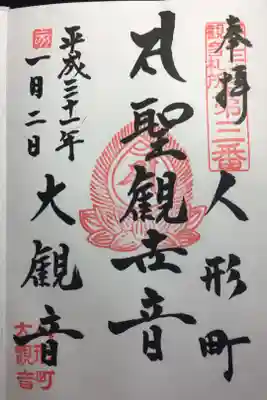 奉拝
第三番
人形町
聖観世音
大観音
平成三十一年
一月二日
人形町
大観音